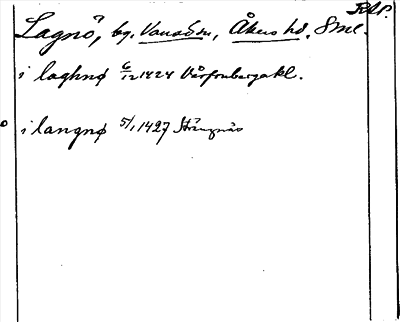 RAp.
Lagnö, by, Vansö sn, Åkers hd. Sml.
i laghnø 6/12 1424 Vårfrubergakl.
i langnø 5/1 1427 Strängnäs